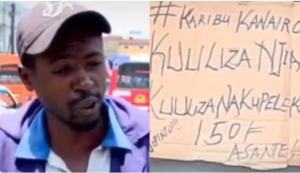 #KARIBU KANAIRO
KUULIZA NJIA
KUULIZA NA KUPELEKWA
150F
ASANTE